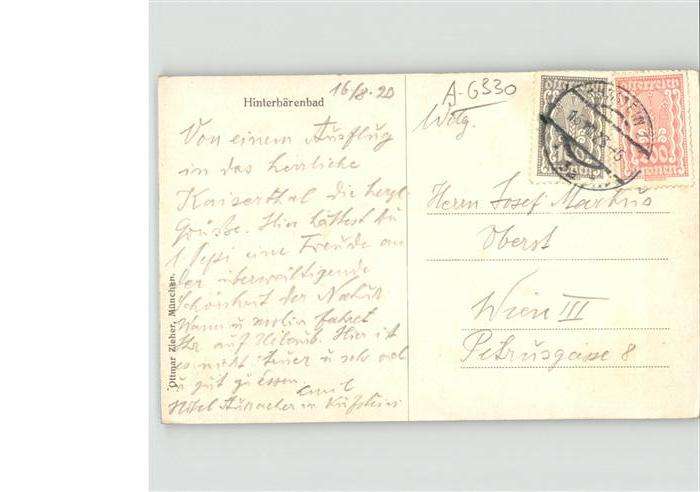 Hinterbärenbad
16/8.20
A-G330
Von einem Ausflug
in das herrliche
Kaiserthal die herzl.
Grüsse. Hier hättest Du
1. Pepi eine Freude an
der überwältigende
Schönheit der Natur
Wann u wohin fahret
Ihr auf Urlaub. Hier ist
es nicht teuer u sehr viel
u gut zu essen
Emil
Hotel in Kufstein
Ottmar Zieher, München.
Herrn Josef Markus
Oberst
Wien III
Petrusgasse 8